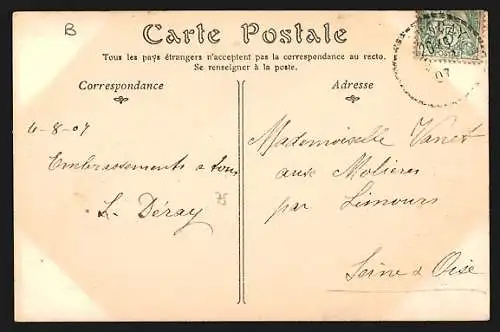 B
Carte Postale
Tous les pays étrangers n'acceptent pas la correspondance au recto.
Se renseigner à la poste.
Correspondance
Adresse
4-8-07
Embrassements a tous
L. Déray
75
Mademoiselle Vanet
aux Molieres
par Limours
Seine & Oise
07